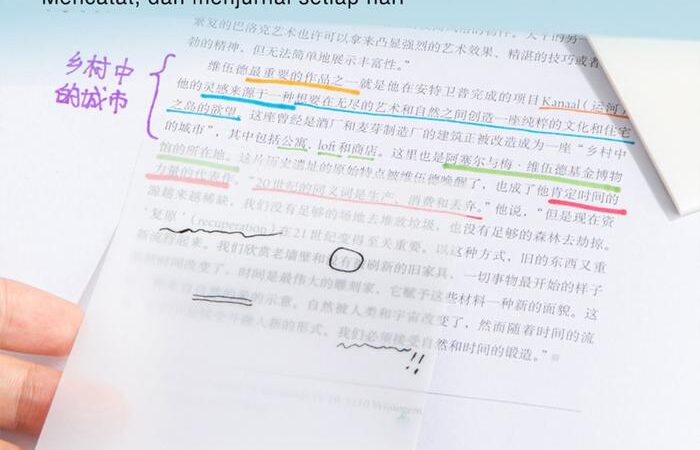 Mencatat, dan menjurnal setiap hari
繁复的巴洛克艺术也许可以拿来凸显强烈的艺术效果、精湛的技巧或者
勃的精神，但无法简单地展示丰富性。”
乡村中
的城市
维伍德最重要的作品之一就是他在安特卫普完成的项目 Kanaal（运河）
他的灵感来源于一种想要在无尽的艺术和自然之间创造一座纯粹的文化和住宅
之岛的欲望。这座曾经是酒厂和麦芽制造厂的建筑正被改造成为一座“乡村中
的城市”，其中包括公寓、loft 和商店。这里也是阿塞尔与梅·维伍德基金博物
馆的所在地。这片历史遗址的原始特点被维伍德唤醒了，也成了他肯定时间的
力量的代表作。“20世纪的同义词是生产、消费和丢弃。”他说，“但是现在资
源越来越稀缺，我们没有足够的场地去堆放垃圾，也没有足够的森林去劫掠。
‘复原’（recuperation）在21世纪变得至关重要。以这种方式，旧的东西又重
新流行起来。我们欣赏老墙壁和没有被刷新的旧家具，一切事物最开始的样子
时间改变了，时间是最伟大的雕刻家，它赋予这些材料一种新的面貌。这
的示意。自然被人类和宇宙改变了，然而随着时间的流
新的形式，我们必须接受自然和时间的锻造。”
!!